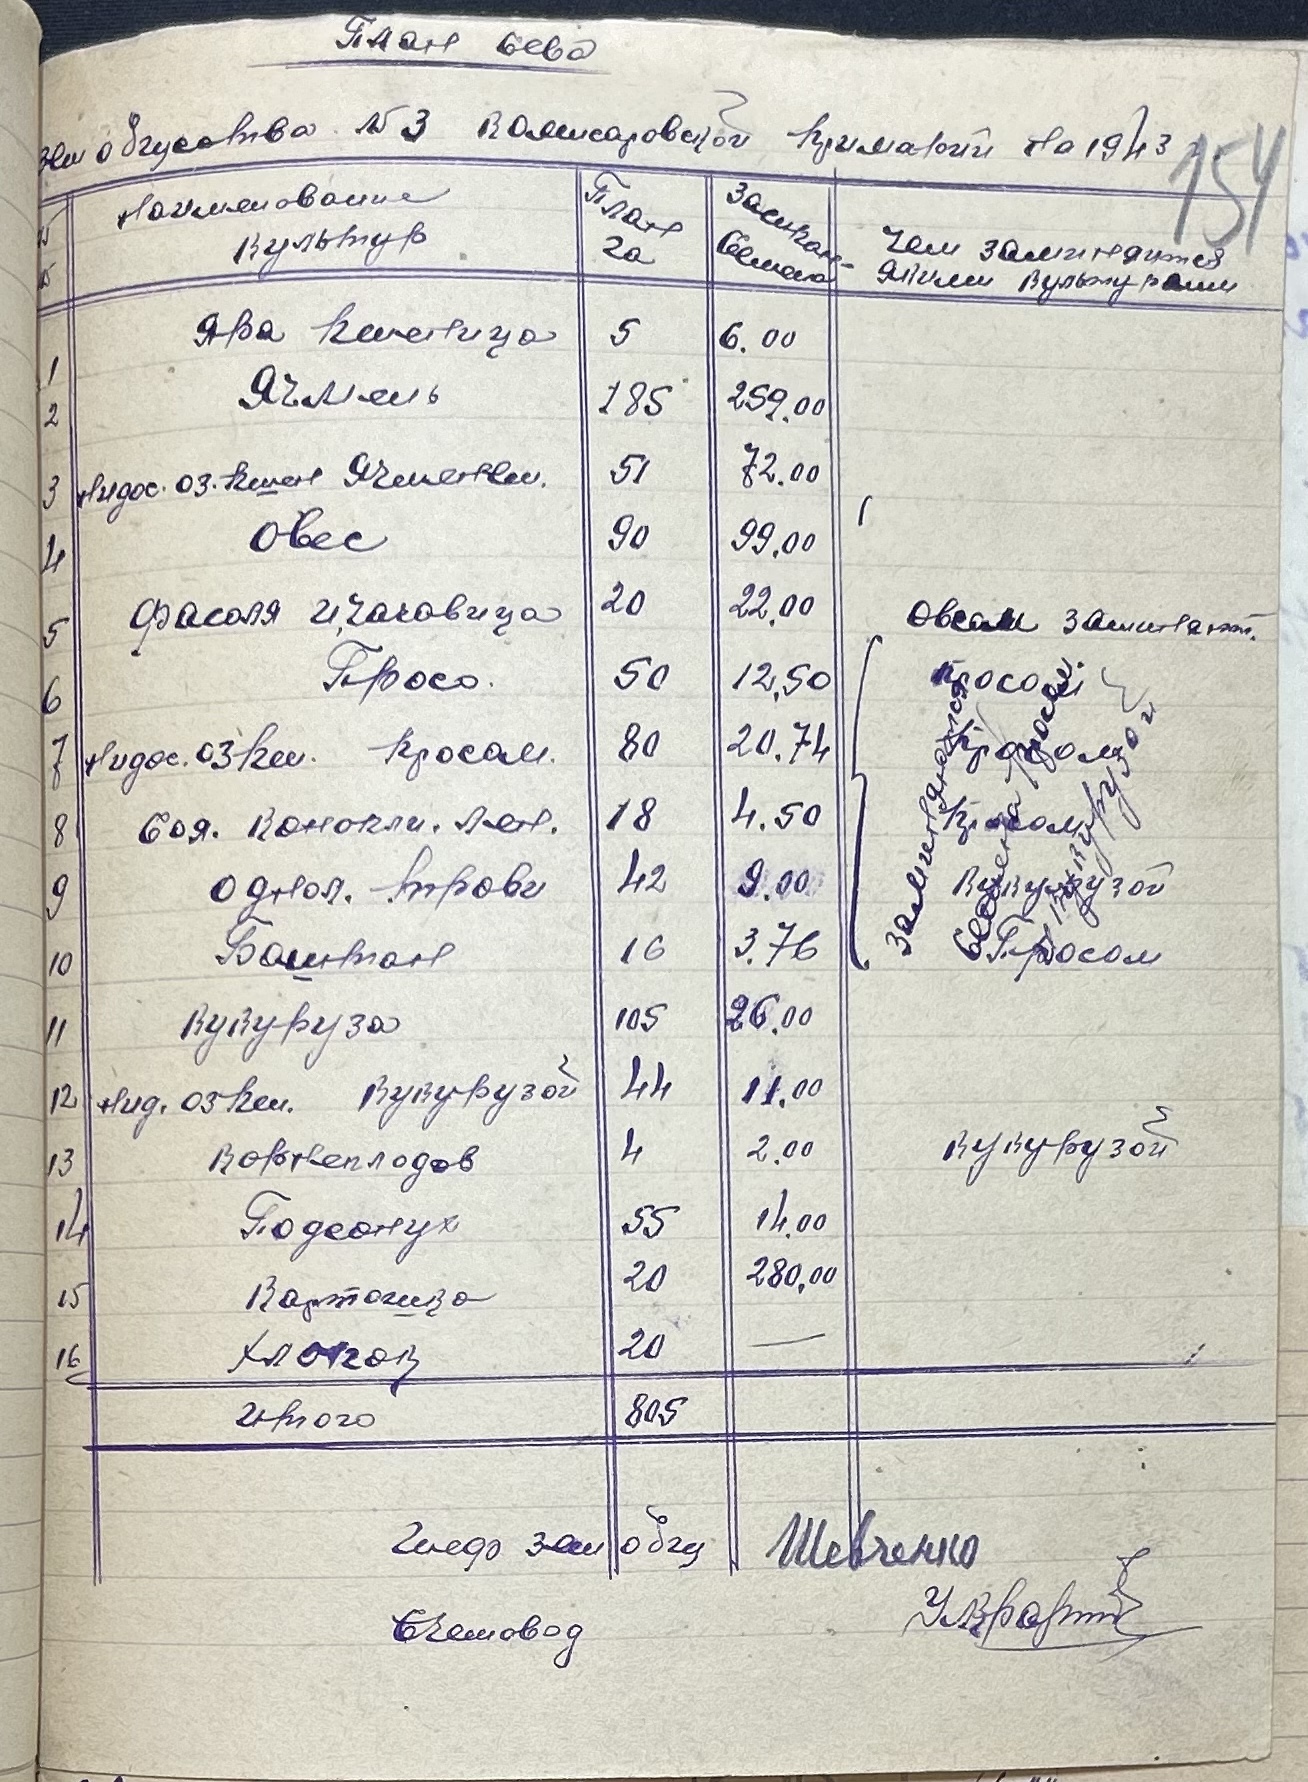 План сева
зем общества №3 Комисаровской на 1943
154
Наименование культур План га Засыпан- семена Чем заминяится якими культурами
1 Яра пшеница 5 6.00
2 Ячмень 185 259.00
3 Нидос. оз. пшен Ячменем. 51 72.00
4 Овес 90 99.00
5 Фасоля и чачовица 20 22.00 Овсом
6 Просо. 50 12,50 просом
7 Нидос. оз пш. просом. 80 20.74 просом
8 Соя. конопли. лен. 18 4.50 просом
9 Однол. трави 42 9.00 кукурузой
10 Баштан 16 3.76 Просом
11 Кукуруза 105 26.00
12 Нид. оз пш. кукурузой 44 11.00
13 Корнеплодов 4 2.00 кукурузой
14 Подсонух 55 14.00
15 Картошка 20 280,00
16 Хлопок 20 —
Итого 805
зем общ Шевченко
Счетовод